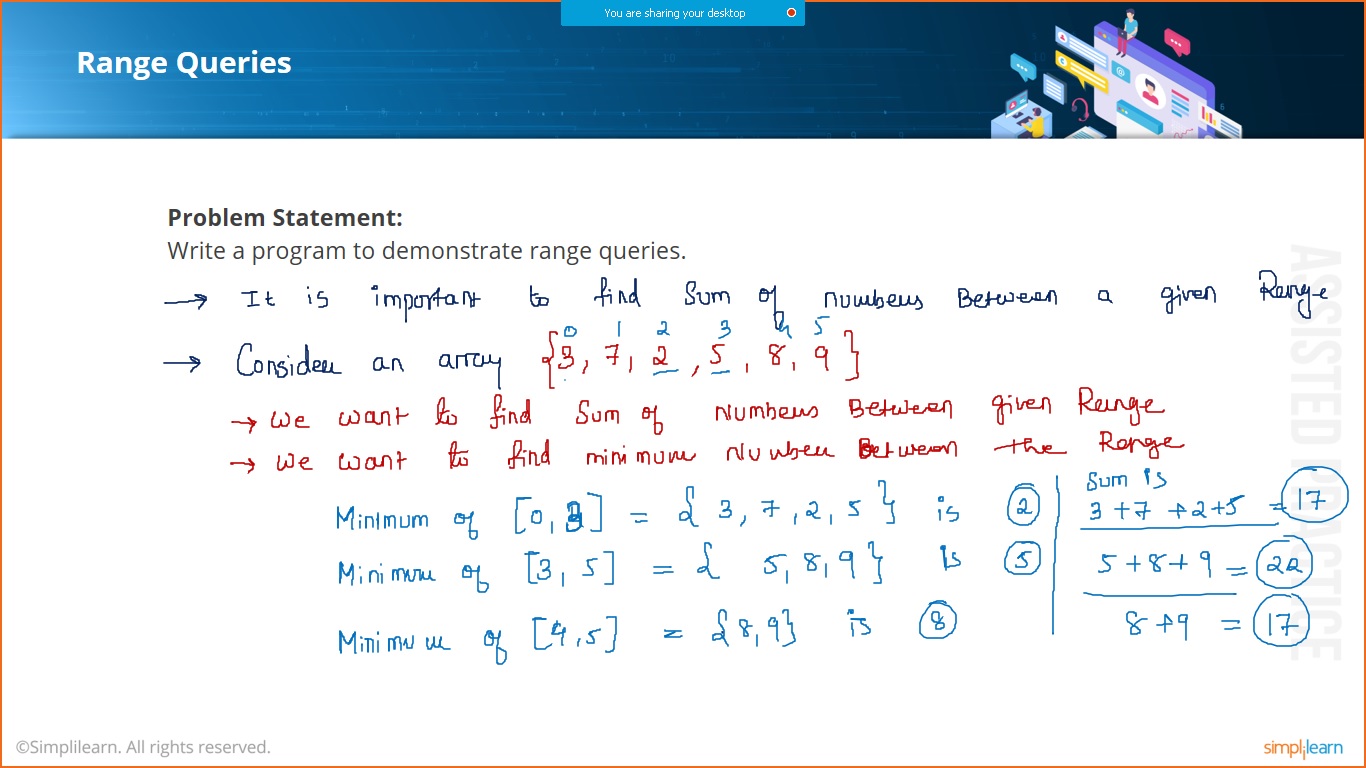 You are sharing your desktop
Range Queries
Problem Statement:
Write a program to demonstrate range queries.
→ It is important to find Sum of numbers Between a given Range
0 1 2 3 4 5
→ Consider an array {3, 7, 2, 5, 8, 9}
→ We want to find Sum of Numbers Between given Range
→ We want to find minimum Number Between the Range
Sum is
Minimum of [0, 3] = {3, 7, 2, 5} is 2 3+7+2+5 = 17
Minimum of [3, 5] = {5, 8, 9} is 5 5+8+9 = 22
Minimum of [4, 5] = {8, 9} is 8 8+9 = 17
ASSISTED PRACTICE
©Simplilearn. All rights reserved.
simplilearn